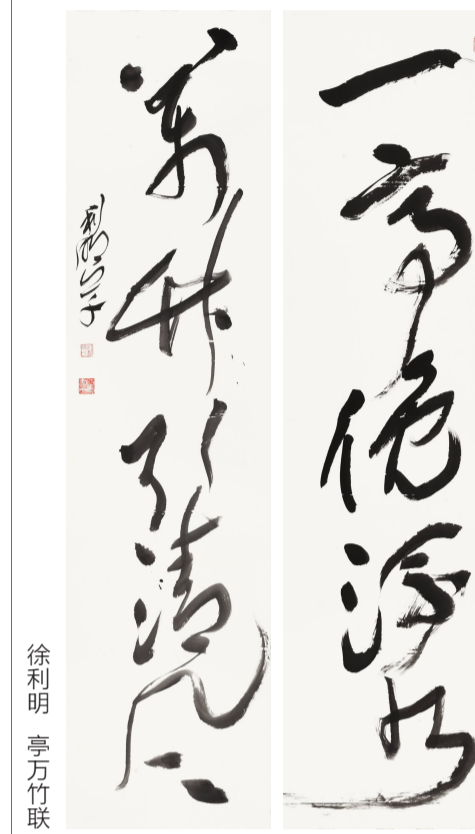 一亭俛流水
萬竹引清風
利明
徐利明 亭万竹联